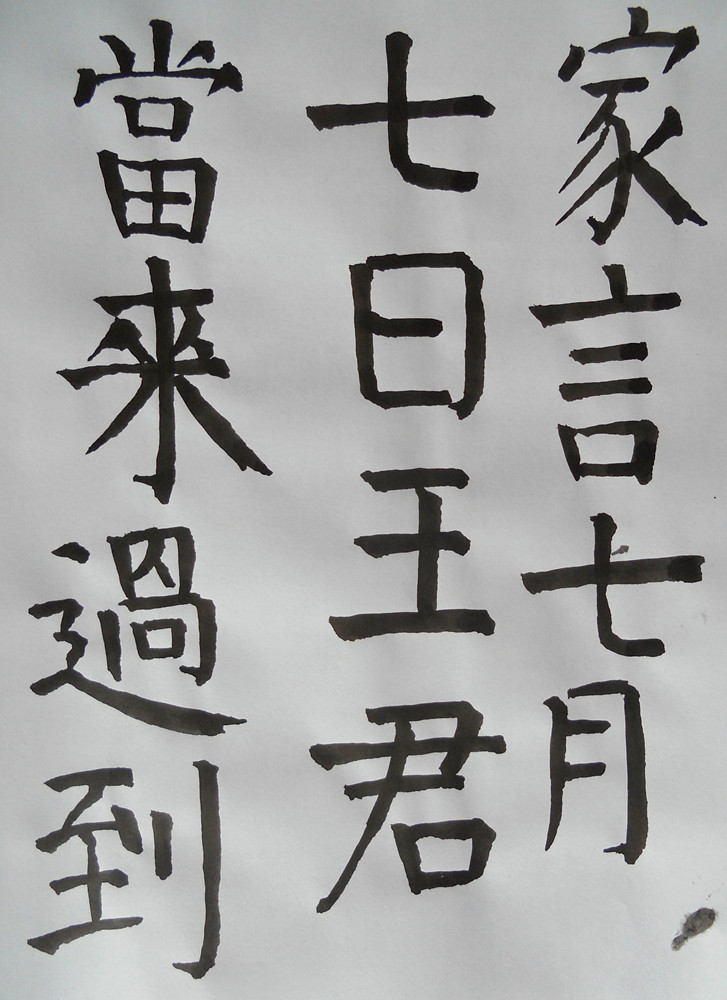 家言七月
七日王君
當來過到